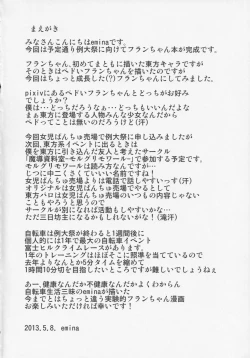 まえがき
みなさんこんにちはeminaです。
今回は予定通り例大祭に向けてフランちゃん本が完成です。
フランちゃん、初めてまともに描いた東方キャラですが
そのときはペドいフランちゃんを描いたのですが
今回はちょっと成長した(?)フランちゃんにしてみました。
pixivにあるペドいフランちゃんとどっちがお好み
でしょうか?
僕は…どっちだろうなぁ…どっちもいいんだよな
まぁ東方に登場する人物みんな少女なんだから
ペドってことは無いのだろうけど(汗)
今回女児ぱんちゅ売場で例大祭に申し込みましたが
次回、東方系イベントに出るときは
僕を東方に引き込んだ友人と考えたサークル
「魔導資料室-モルグリモワール-」で参加する予定です。
モルグリモワールは読み方なんですが…
じつに中二くさくていいい名前ですね!
女児ぱんちゅ売場よりは電話で話しやすいっす(汗)
オリジナルは女児ぱんちゅ売場でやるとして
東方ペロは女児ぱんちゅ売場のいつもの内容じゃない
こともやろうと思うので
サークルが別になれば活動もしやすいかな…
ただ三日坊主になるかもしれないがな!(滝汗)
自転車は例大祭が終わると1週間後に
個人的には1年で最大の自転車イベント
富士ヒルクライムレースがあります。
1年のトレーニングはほぼそこに照準を当てているので
去年よりなんとか5分タイムを縮めて
1時間10分切を目指したいところですが難しいでしょうねぇ
あー、健康なんだか不健康なんだかよくわからん
自転車生活三昧のeminaが描いた
今までとはちょっと違う実験的フランちゃん漫画
お楽しみいただければ幸いです!
2013.5.8. emina